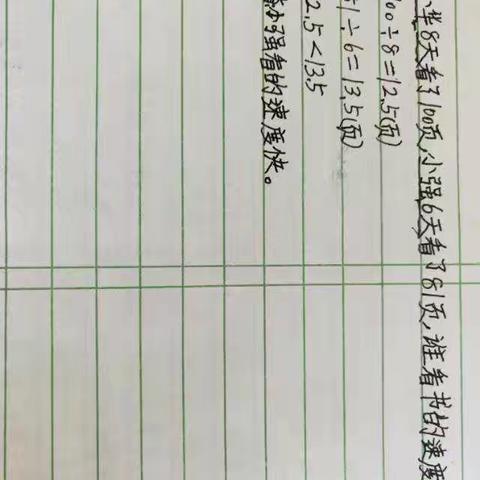 小华8天看了100页,小强6天看了81页,谁看书的速度
00÷8=12.5(页)
1÷6=13.5(页)
2.5<13.5
小强看的速度快。